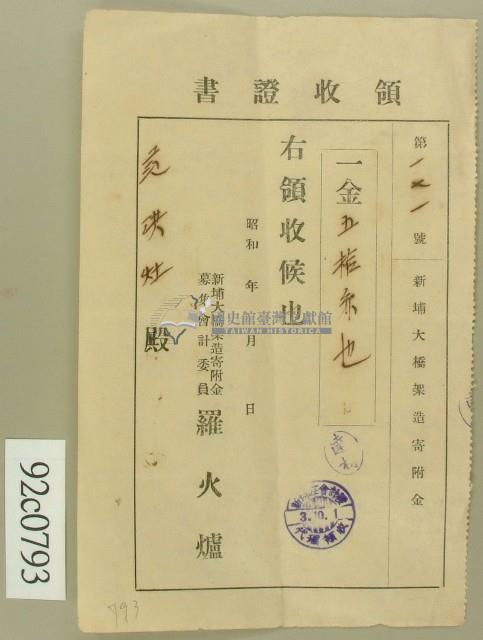 領收證書
第一又一號
新埔大橋架造寄附金
一金五拾円也
右領收候也
昭和 年 月 日
新埔大橋架造寄附金
募集會計委員
羅火爐
范洪灶
殿
3.10.1
國史館臺灣文獻館
TAIWAN HISTORICA
92c0793
793